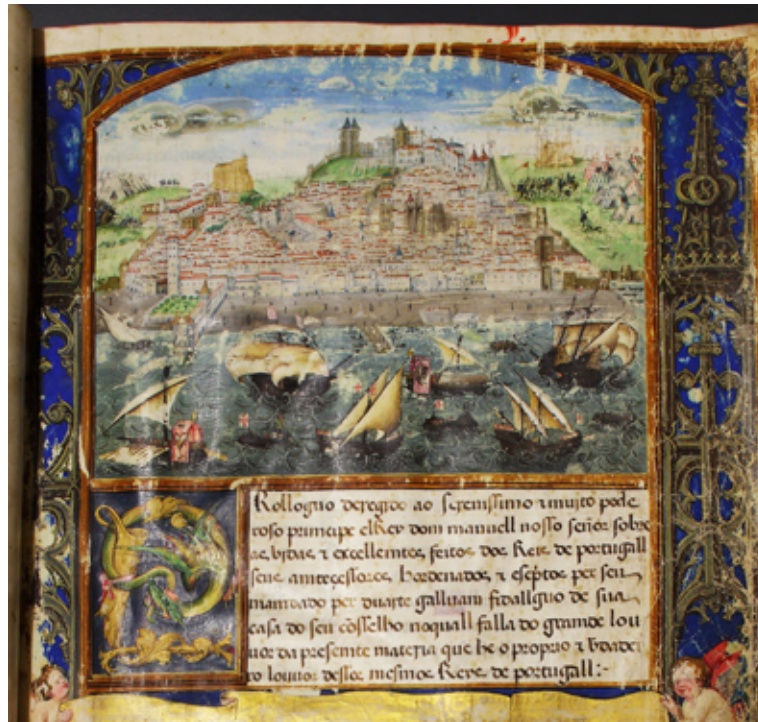 PRolloguo deregido ao serenissimo ⁊ muito pode
roso principe elRey dom manuell nosso señor sobre
as vidas ⁊ excellentes feitos dos Reis de portugall
seus anteçessores hordenados ⁊ escptos per seu
mandado per duarte galluam fidallguo de sua
casa do seu cõsselho noquall falla do grande lou
uor da presente materia que he o proprio ⁊ vdadei
ro louuor desses mesmos Reys de portugall :-